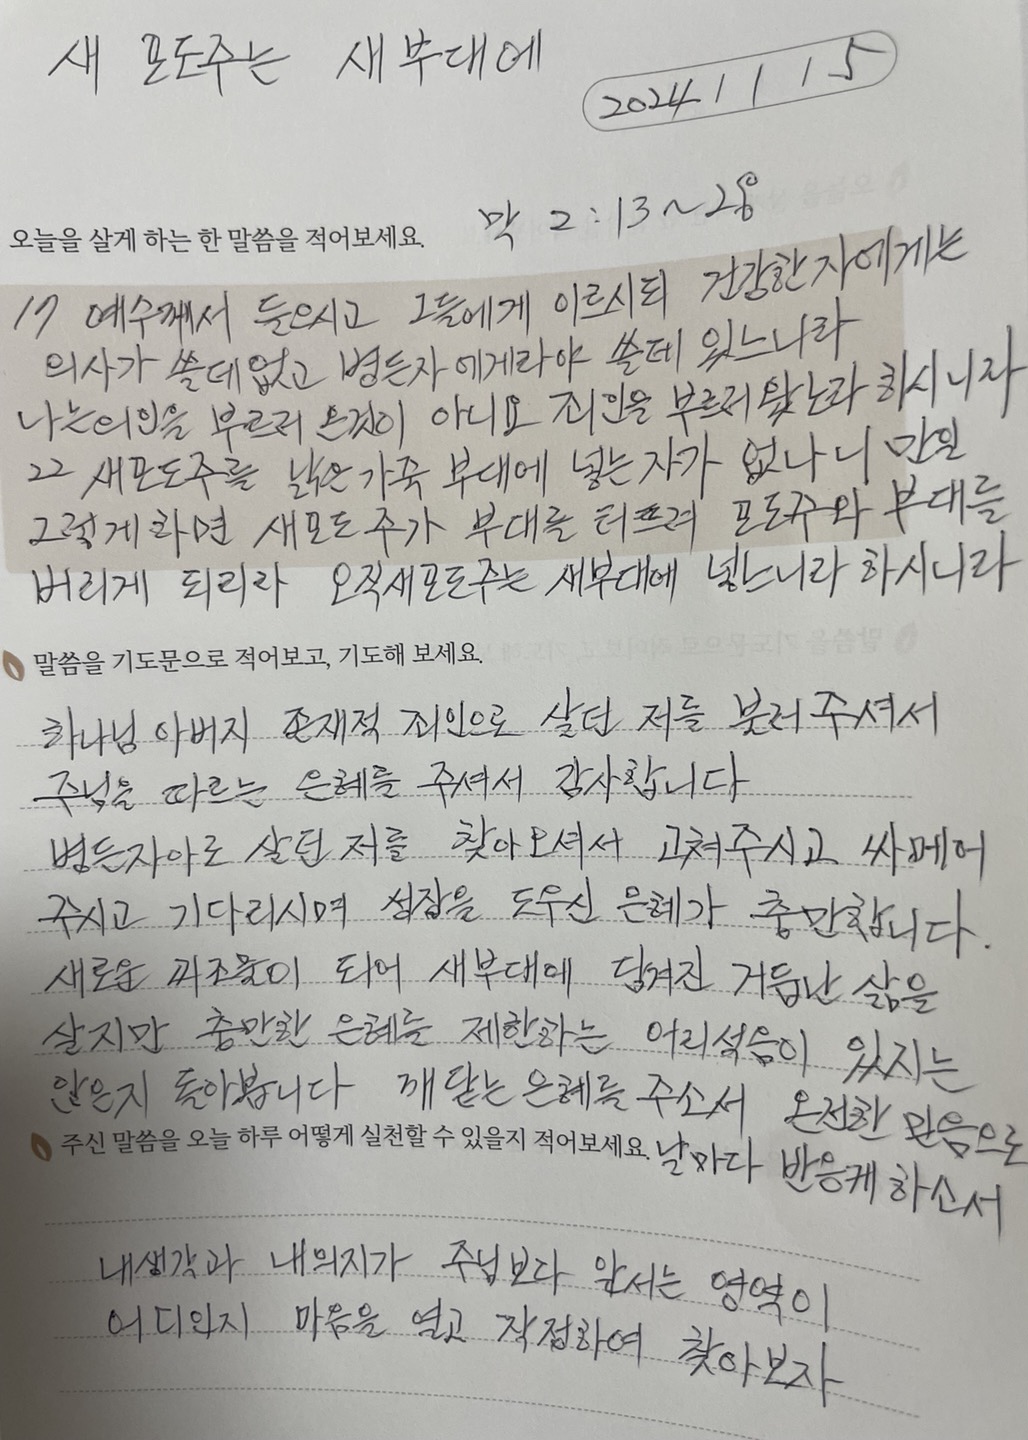 새 포도주는 새부대에
2024 / 1 / 15
막 2:13~28
오늘을 살게 하는 한 말씀을 적어보세요.
17 예수께서 들으시고 그들에게 이르시되 건강한자에게는
의사가 쓸데없고 병든자에게라야 쓸데 있느니라
나는의인을 부르러 온것이 아니요 죄인을 부르러왔노라 하시니라
22 새포도주를 낡은가죽 부대에 넣는자가 없나니 만일
그렇게하면 새포도주가 부대를 터뜨려 포도주와 부대를
버리게 되리라 오직새포도주는 새부대에 넣느니라 하시니라
말씀을 기도문으로 적어보고, 기도해 보세요.
하나님 아버지 존재적 죄인으로 살던 저를 불러주셔서
주님을 따르는 은혜를 주셔서 감사합니다
병든자아로 살던 저를 찾아오셔서 고쳐주시고 싸메어
주시고 기다리시며 성장을 도우신 은혜가 충만합니다.
새로운 피조물이 되어 새부대에 담겨진 거듭난 삶을
살지만 충만한 은혜를 제한하는 어리석음이 있지는
않은지 돌아봅니다 깨닫는은혜를 주소서 온전한 믿음으로
주신 말씀을 오늘 하루 어떻게 실천할 수 있을지 적어보세요.
날마다 반응케하소서
내생각과 내의지가 주님보다 앞서는 영역이
어디인지 마음을 열고 작정하여 찾아보자